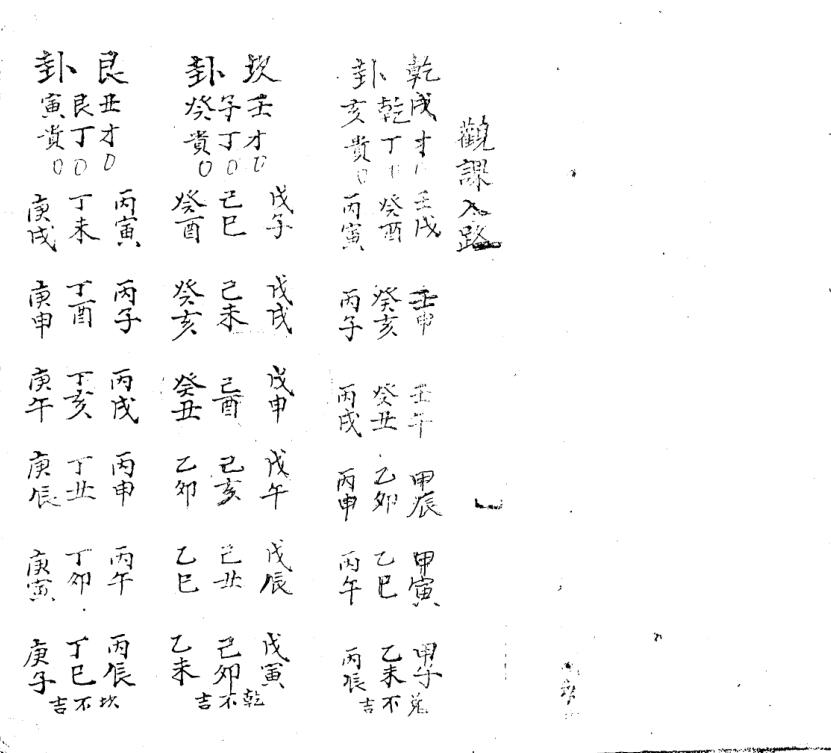 觀課入路
乾卦
戌才0 壬戌 壬申 壬午 甲辰 甲寅 甲子
乾丁0 癸酉 癸亥 癸丑 乙卯 乙巳 乙未
亥貴0 丙寅 丙子 丙戌 丙申 丙午 丙辰
兌不吉
坎卦
壬才0 戊子 戊戌 戊申 戊午 戊辰 戊寅
子丁0 己巳 己未 己酉 己亥 己丑 己卯
癸貴0 癸酉 癸亥 癸丑 乙卯 乙巳 乙未
乾不吉
艮卦
丑才0 丙寅 丙子 丙戌 丙申 丙午 丙辰
艮丁0 丁未 丁酉 丁亥 丁丑 丁卯 丁巳
寅貴0 庚戌 庚申 庚午 庚辰 庚寅 庚子
坎不吉